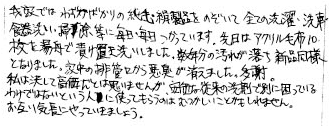 我家では わずかばかりの純毛、絹製品をのぞいて全ての洗濯、洗車
食器洗い、掃除等に毎日毎日つかっています。先日はアクリル毛布10
枚を湯舟で漬け置き洗いしました。数年分の汚れが落ち新品同様
となりました。家中の排管から悪臭が消えました。多謝。
私は決して高価だとは思いませんが、安価な従来の洗剤で別に困っている
わけではないという人に使ってもらうのはむつかしいことかもしれません。
お互い気長にやっていきましょう。